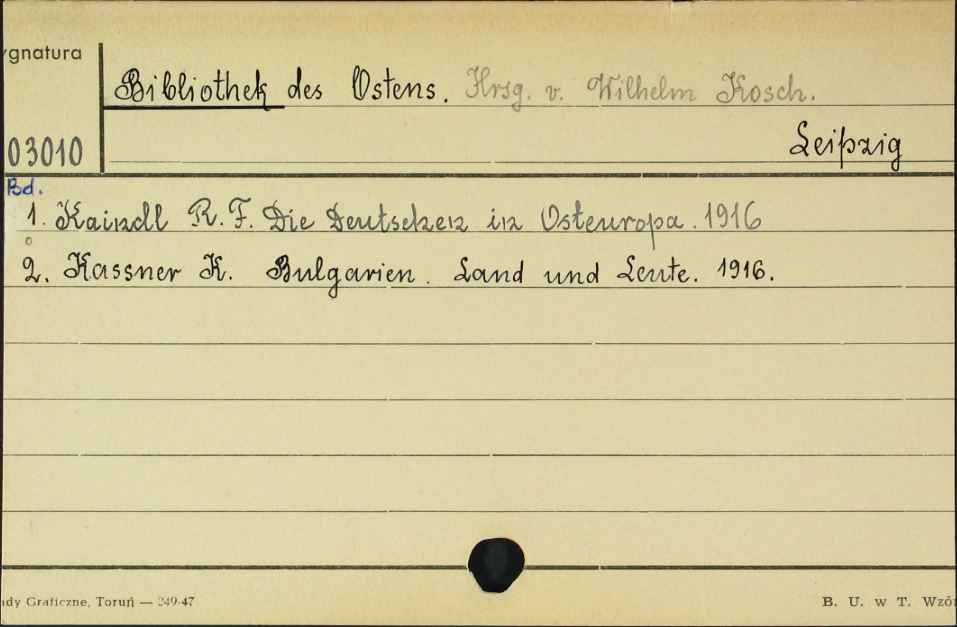 ygnatura
Bibliothek des Ostens. Hrsg. v. Wilhelm Kosch.
03010
Leipzig
Bd.
1. Kaindl R. F. Die Deutschen in Osteuropa. 1916
2. Kassner K. Bulgarien. Land und Leute. 1916.
ady Graficzne, Toruń — 249-47
B. U. w T. Wzór